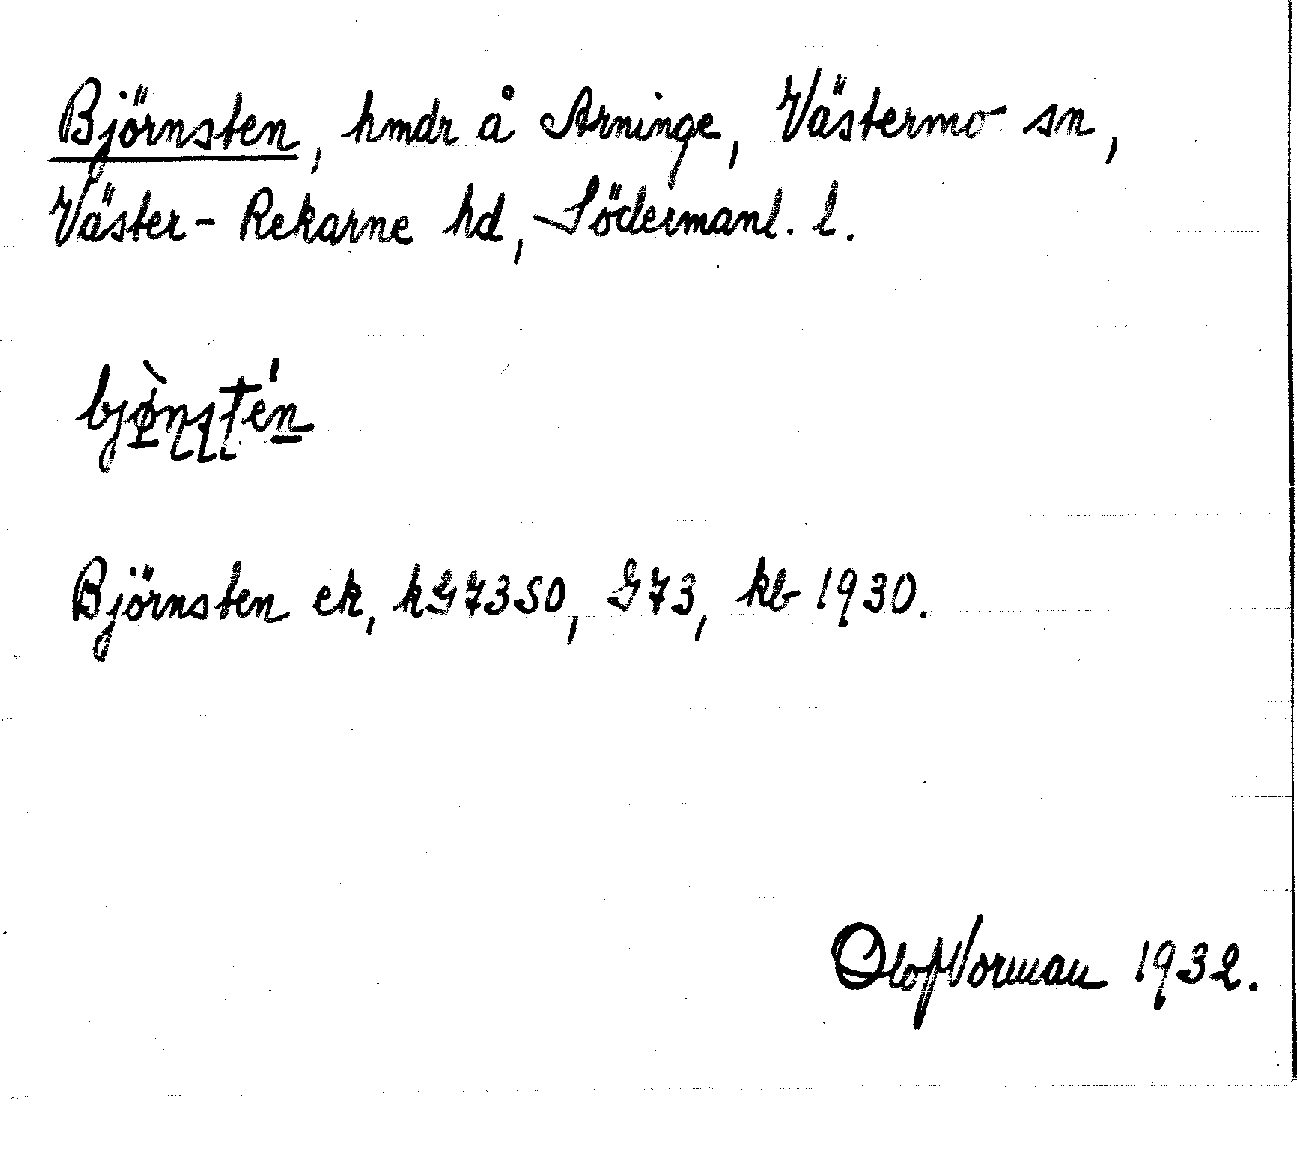 Björnsten, hmdr å Arninge, Västermo sn,
Väster-Rekarne hd, Södermanl. l.
Björnsten ek, kG7350, G73, kb 1930.
Olof Norman 1932.